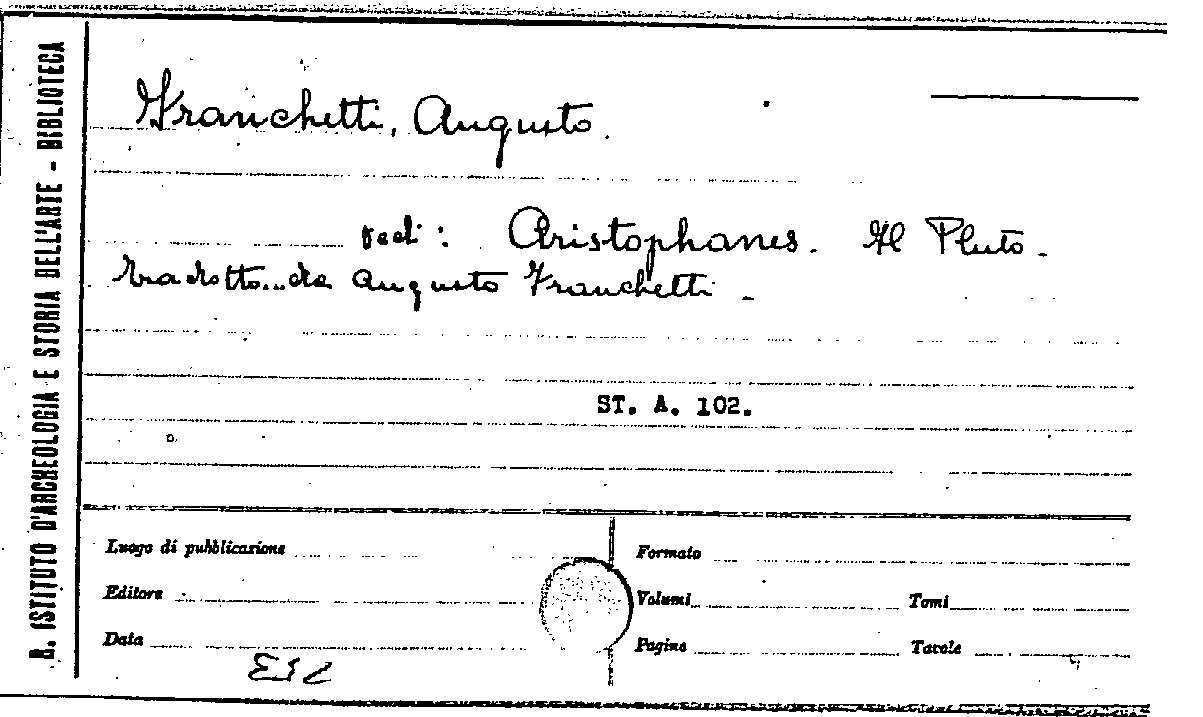 R. ISTITUTO D'ARCHEOLOGIA E STORIA DELL'ARTE - BIBLIOTECA
Franchetti, Augusto.
vedi: Aristophanes. Il Pluto.
tradotto da Augusto Franchetti.
ST. A. 102.
Luogo di pubblicazione
Editore
Data
Formato
Volumi Tomi
Pagine Tavole